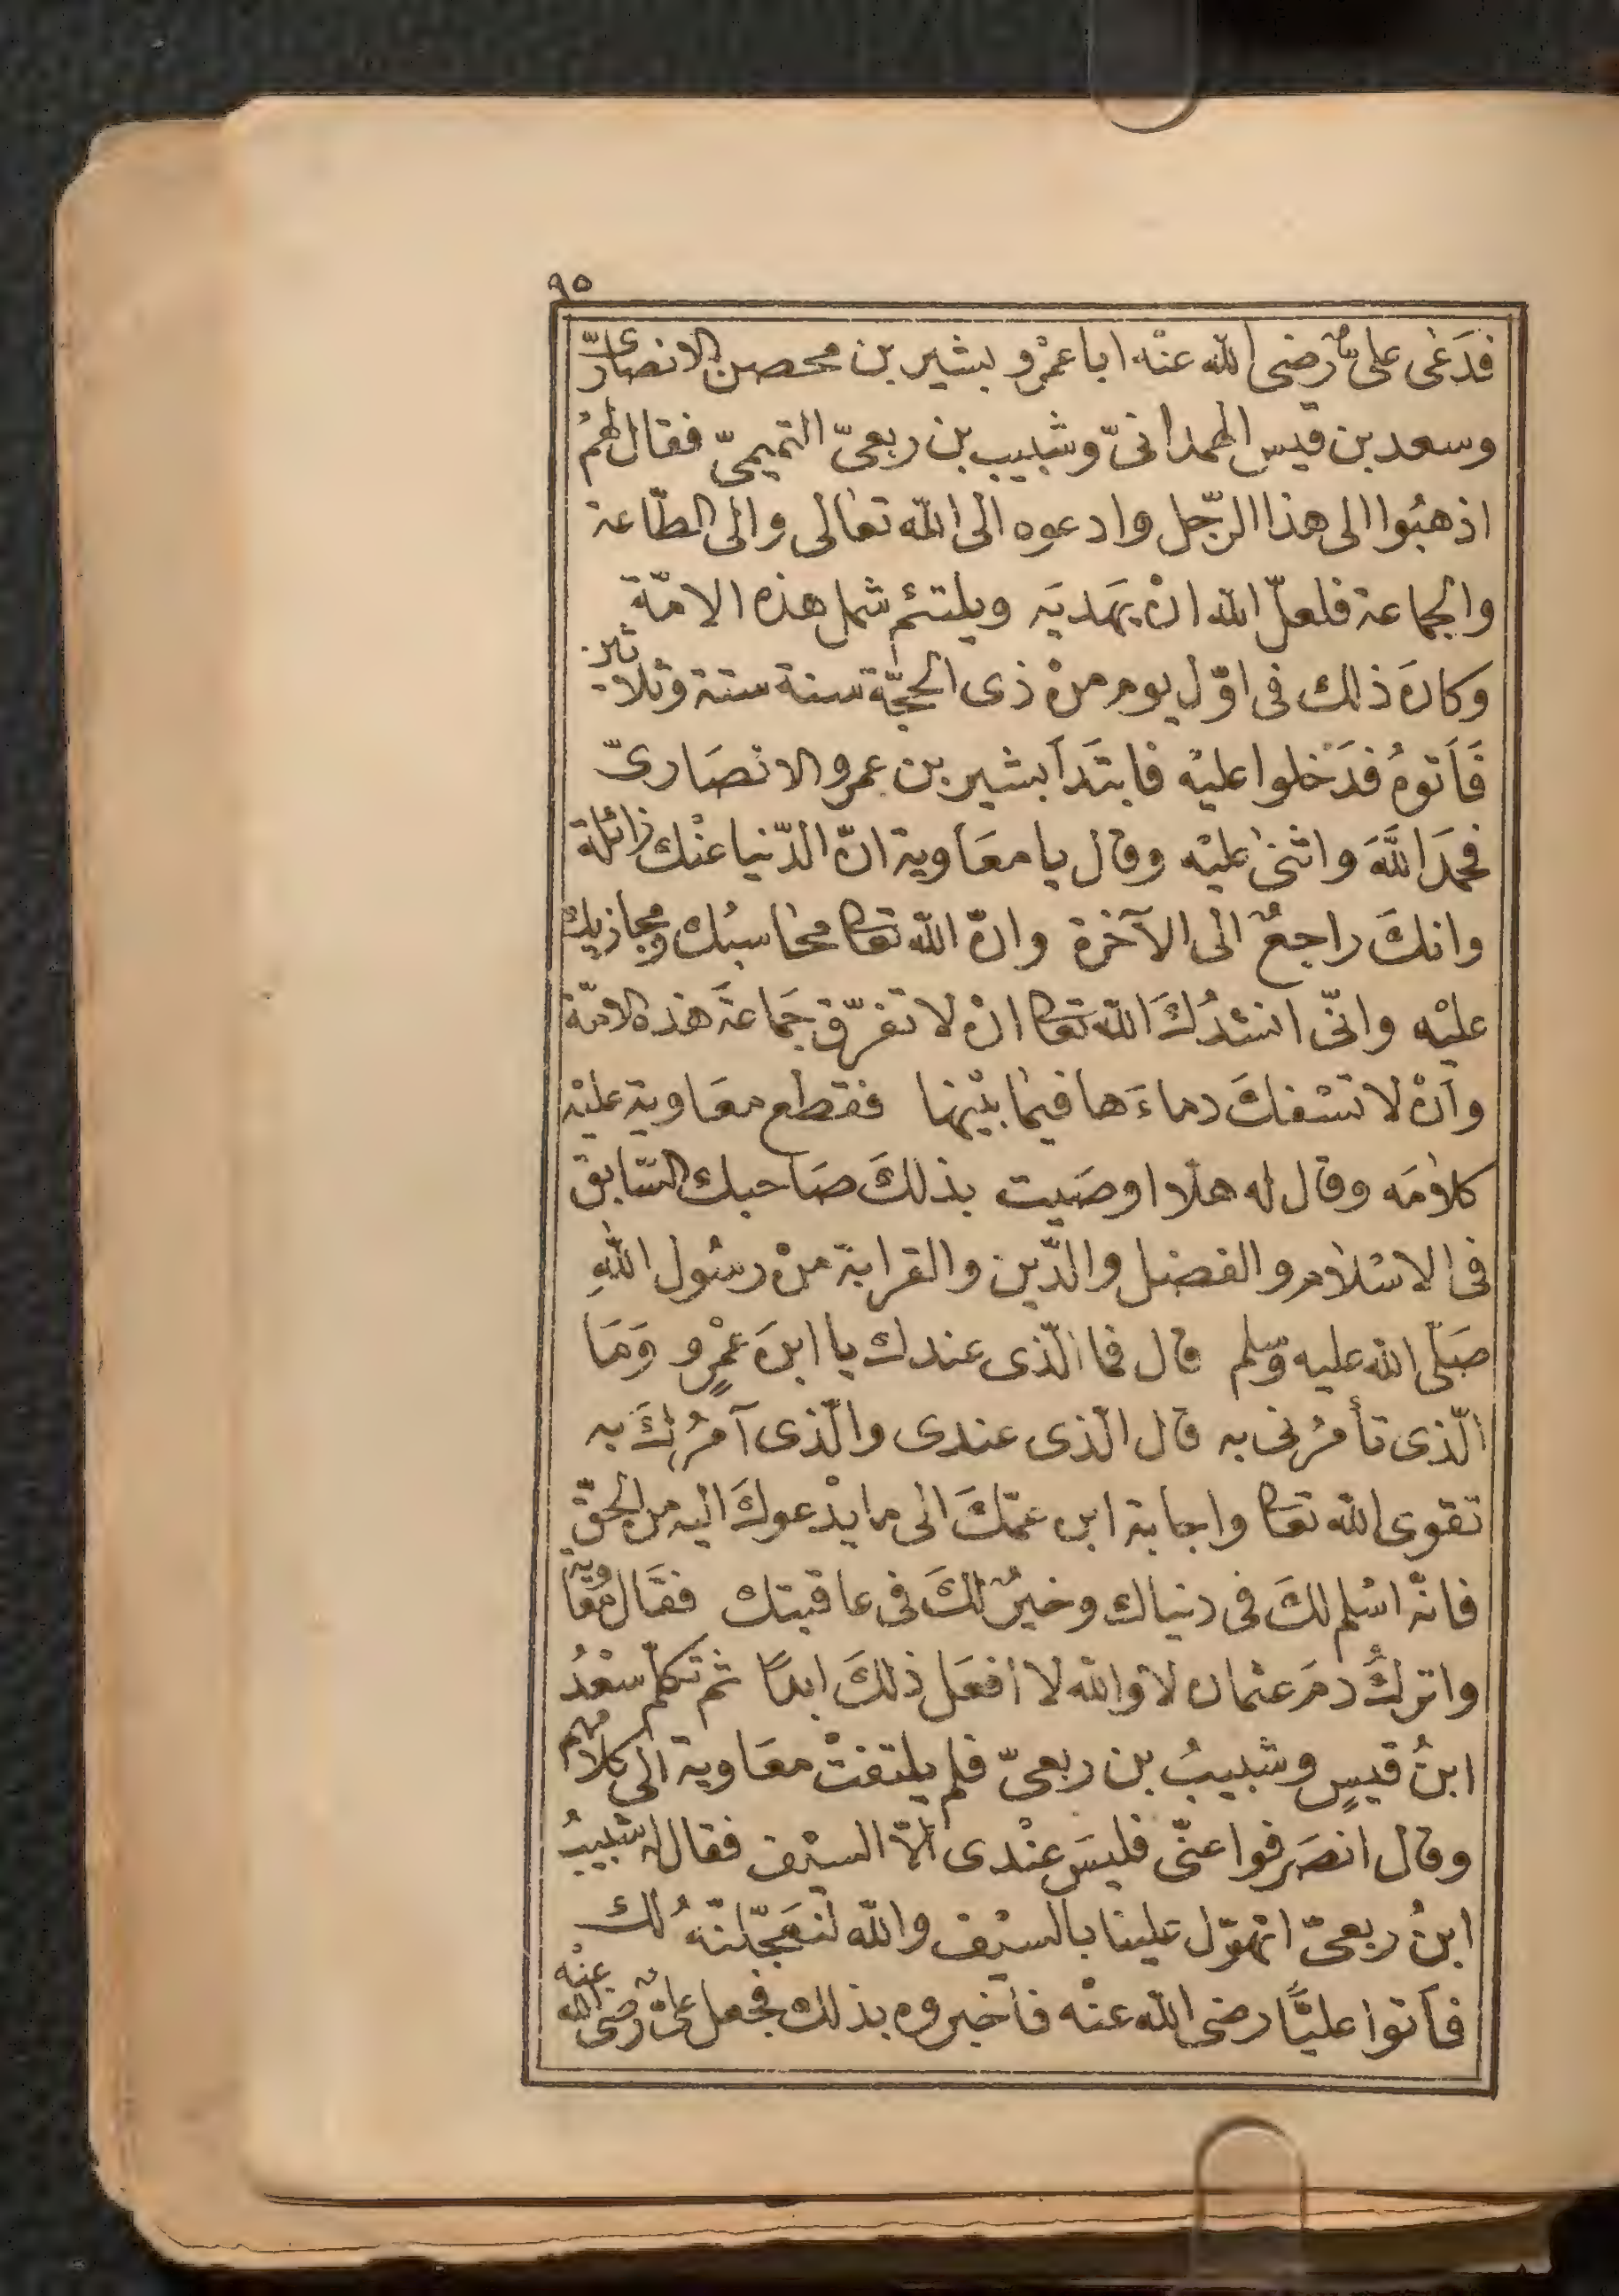 ٩٥
فدَعٰى علىٌّ رضى الله عنْه ابا عمْرو بشير بن محصن الانصارىّ
وسعد بن قيس الهمدانىّ وشبيب بن ربعىّ التميمىّ فقال لهمُ
اذهبُوا الى هذا الرّجل وادعوه الى الله تعالى والى الطّاعة
والجماعة فلعلّ الله انْ يهَديَه ويلتئم شمل هذه الامّة
وكانَ ذلك فى اوّل يوم منْ ذى الحجّة سنة ستة وثلاثين
فَاَتوهُ فدَخلوا عليْه فابتَدأ بشير بن عمرو الانصَارىّ
فحمدَ اللّٰهَ واثنىٰ عليْه وقال يا معَاوية انّ الدّنيا عنْك زائلة
وانكَ راجعٌ الى الآخرة وانّ الله تعا محٰاسبُك ومجازيك
عليْه وانّى انشدُكَ الله تعا انْ لا تفرّق جَماعةَ هذه الامّة
وأنْ لا تسْفكَ دماءَها فيما بيْنها فقطع معَاوية عليْه
كلامَه وقال له هلّا اوصَيت بذلكَ صَاحبك السّابق
فى الاسْلام والفضل والدّين والقرابة منْ رسُول اللهِ
صَلّى الله عليه وسلم قال فما الّذى عندك يا ابنَ عمْرٍو وَمَا
الّذى تأمرُنى به قال الّذى عندى والّذى آمرُكَ به
تقوى الله تعا واجابة ابن عمّكَ الى ما يدْعوكَ اليه من الحقّ
فانّه اسْلم لكَ فى دنياك وخيرٌ لكَ فى عاقبتك فقَال معٰاوية
واتركُ دمَ عثمان لا والله لا افعَل ذلكَ ابدًا ثم تكلّم سعْدُ
ابنُ قيسٍ وشبيبُ بن ربعىّ فلم يلتفتْ معَاوية الى كلامهم
وقال انصَرفوا عنّى فليسَ عنْدى الّا السيْف فقال له شبيبُ
ابنُ ربعىّ اتهوّل علينا بالسيْف والله لنعَجّلنّهُ لك
فاَتوا عليًّا رضى الله عنْه فاَخبروه بذلك فجعل علىٌّ رضى الله عنْه